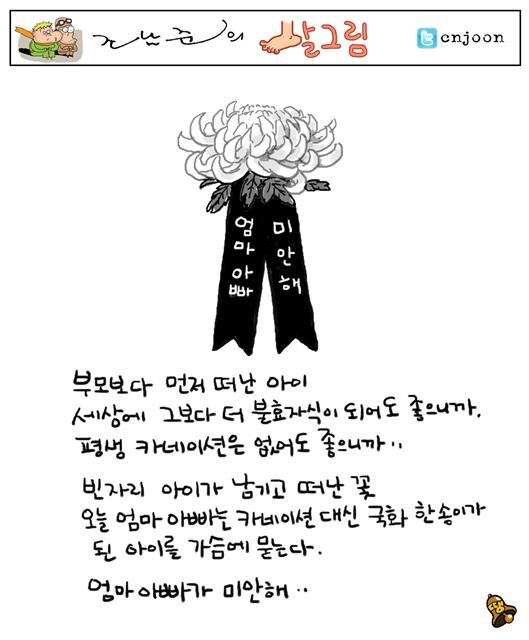 조남준의 발그림
cnjoon
엄마아빠
미안해
부모보다 먼저 떠난 아이
세상에 그보다 더 불효자식이 되어도 좋으니까.
평생 카네이션은 없어도 좋으니까..
빈자리 아이가 남기고 떠난 꽃
오늘 엄마 아빠는 카네이션 대신 국화 한송이가
된 아이를 가슴에 묻는다.
엄마 아빠가 미안해..
땡